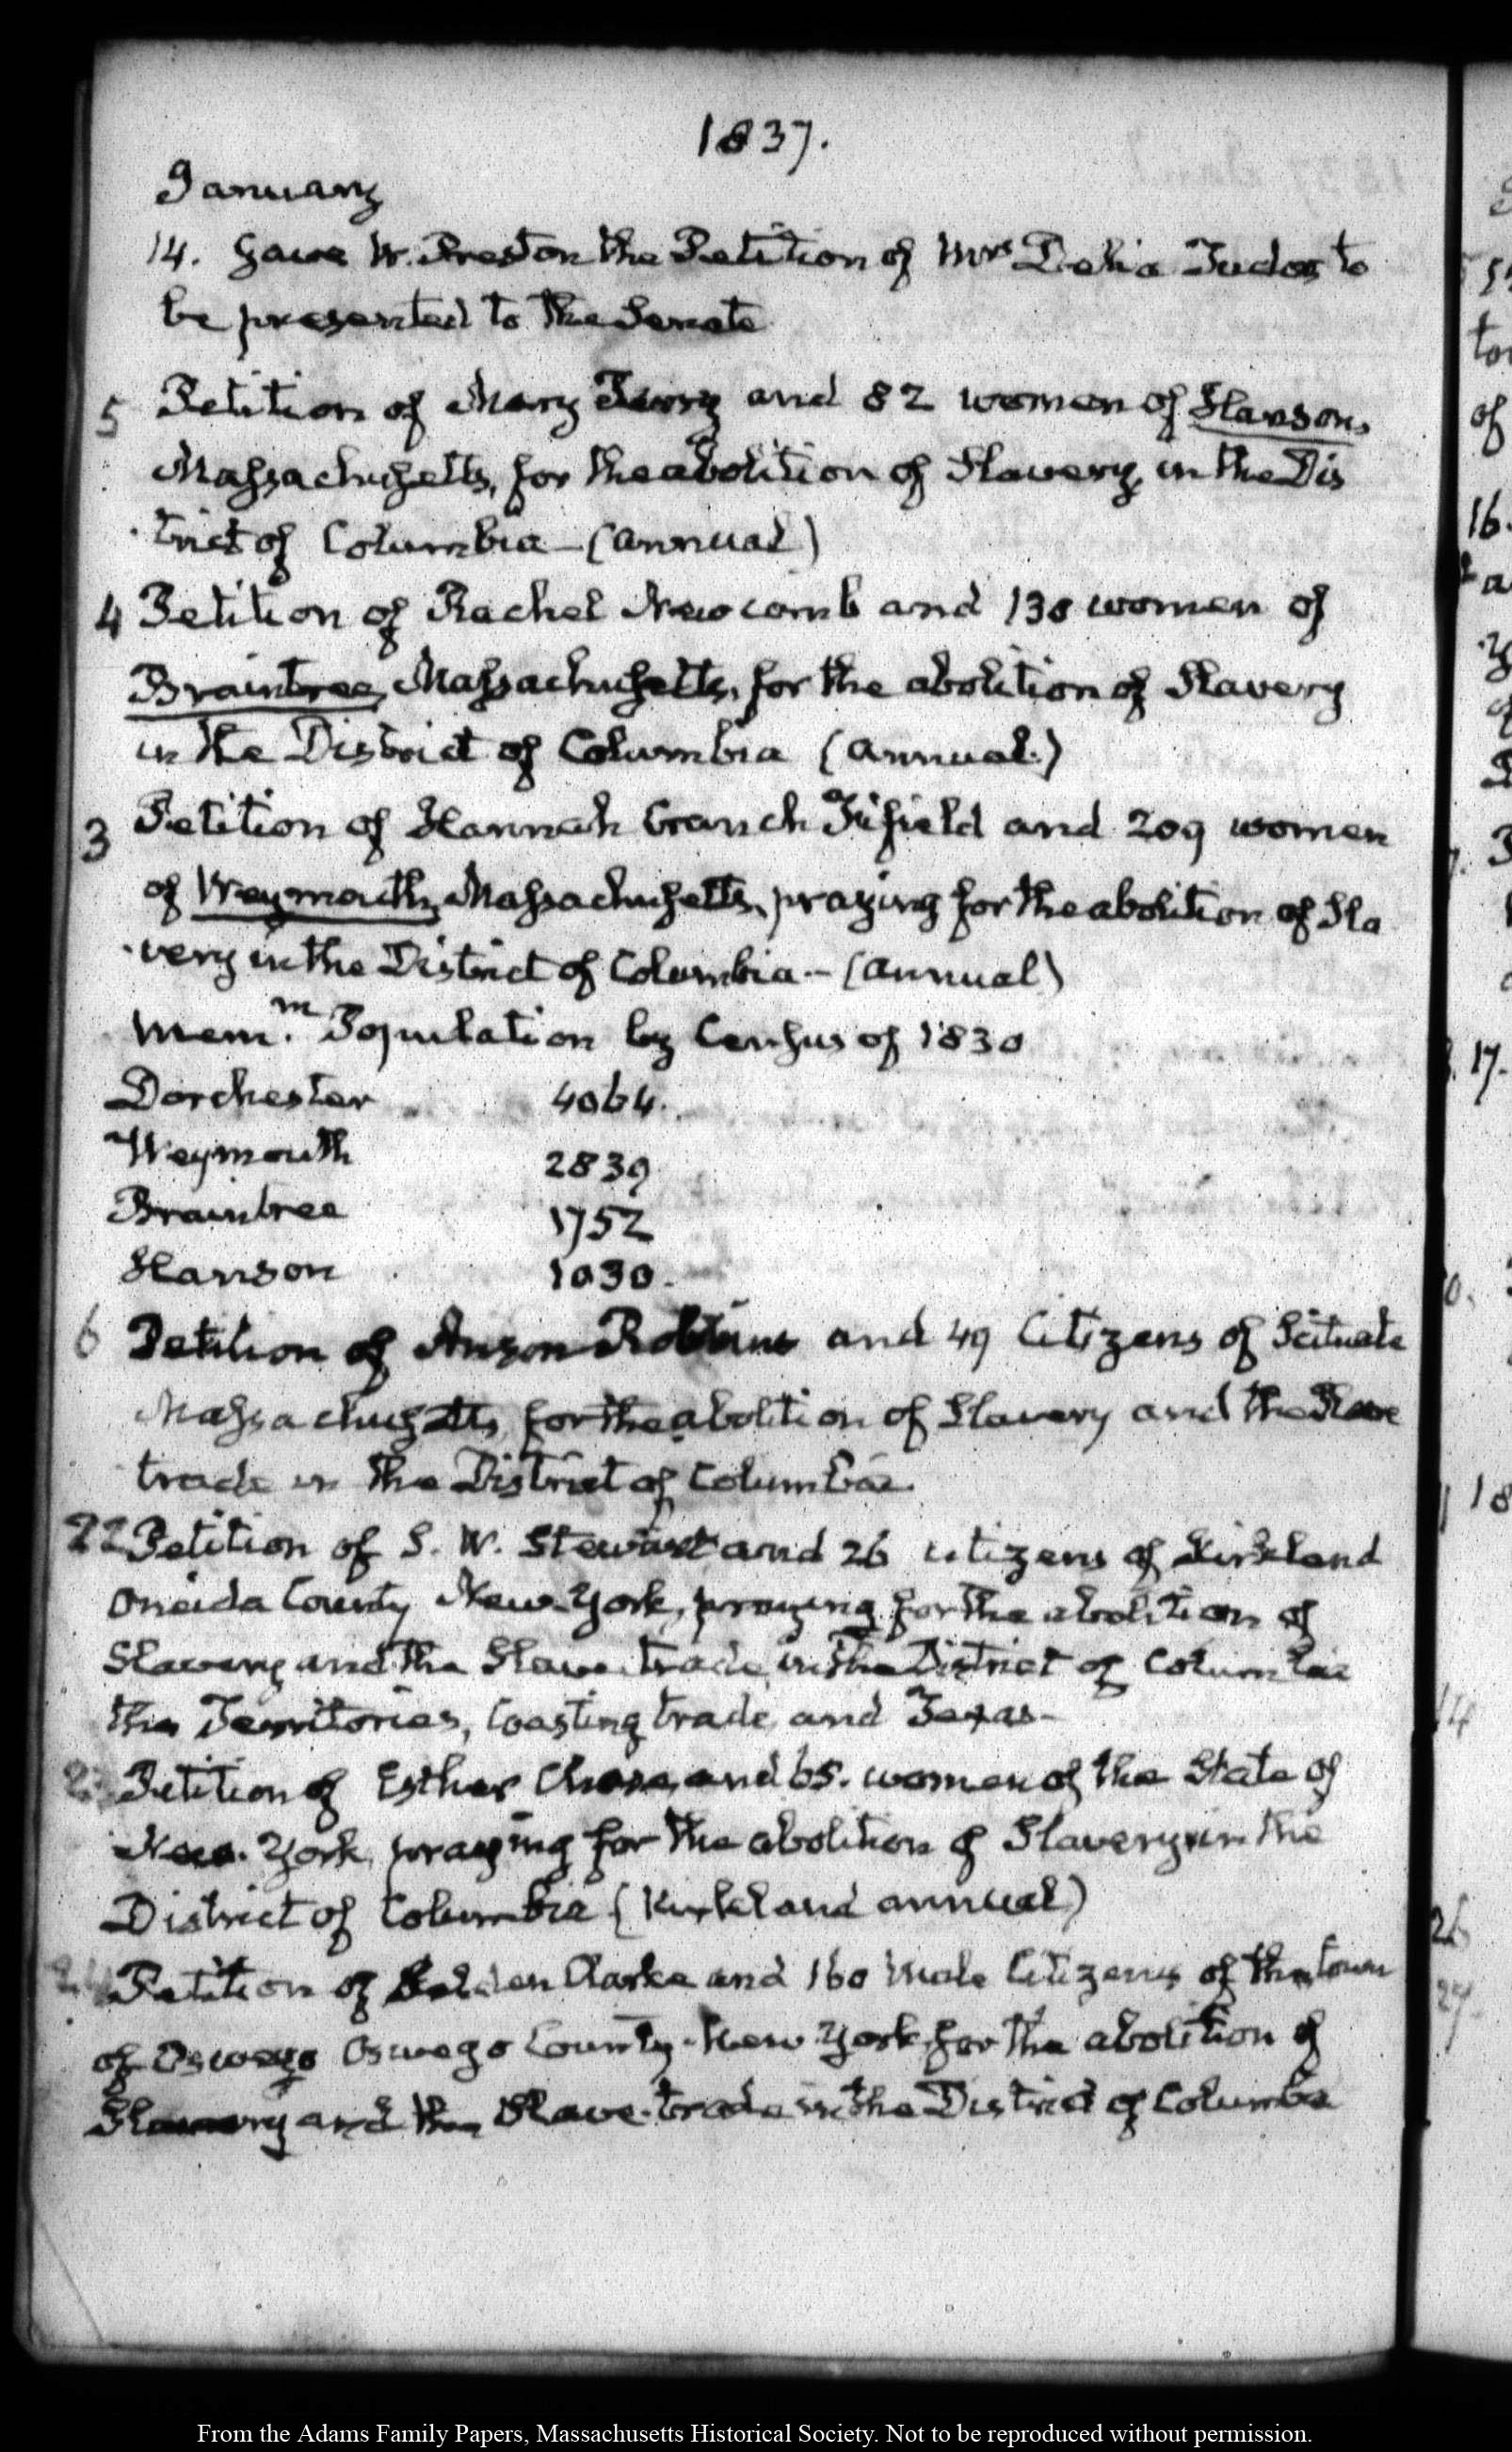 1837.
January
14. Gave W. Preston the Petition of Mrs Delia Tudor to
be presented to the Senate
5 Petition of Mary and 82 women of Hanson,
Massachusetts, for the abolition of Slavery, in the Dis
trict of Columbia – (annual)
4 Petition of Rachel Newcomb and 130 women of
Braintree, Massachusetts, for the abolition of Slavery
in the District of Columbia (annual.)
3 Petition of Hannah Cranch Fifield and 209 women
of Weymouth, Massachusetts, praying for the abolition of Sla
very in the District of Columbia – (annual)
Mem.m Population by Census of 1830
Dorchester 4064.
Weymouth 2839
Braintree 1752
Hanson 1030.
6 Petition of Anson Robbins and 49 Citizens of Scituate
Massachusetts, for the abolition of Slavery and the Slave
trade in the District of Columbia.
22 Petition of S. W. Stewart and 26 citizens of Kirkland
Oneida County New-York, praying for the abolition of
Slavery and the Slave trade, in the District of Columbia
the Territories, Coasting trade, and Texas–
Petition of Esther Chase, and 65. women of the State of
New-York, praying for the abolition of Slavery in the
District of Columbia (Kirkland annual)
Petition of Clarke and 160 Male Citizens of the town
of Oswego Oswego County. New York for the abolition of
Slavery and the Slave-trade in the District of Columbia
16.
17.
18
14
26
27
From the Adams Family Papers, Massachusetts Historical Society. Not to be reproduced without permission.